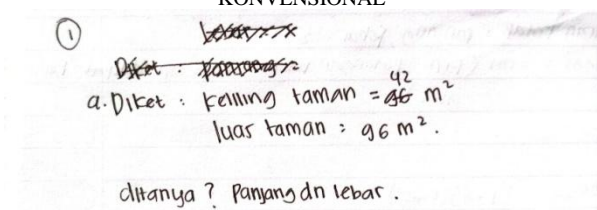 KONVENSIONAL
1
a. Diket : Keliling taman = 42 m²
luas taman : 96 m².
ditanya ? Panjang dn lebar .